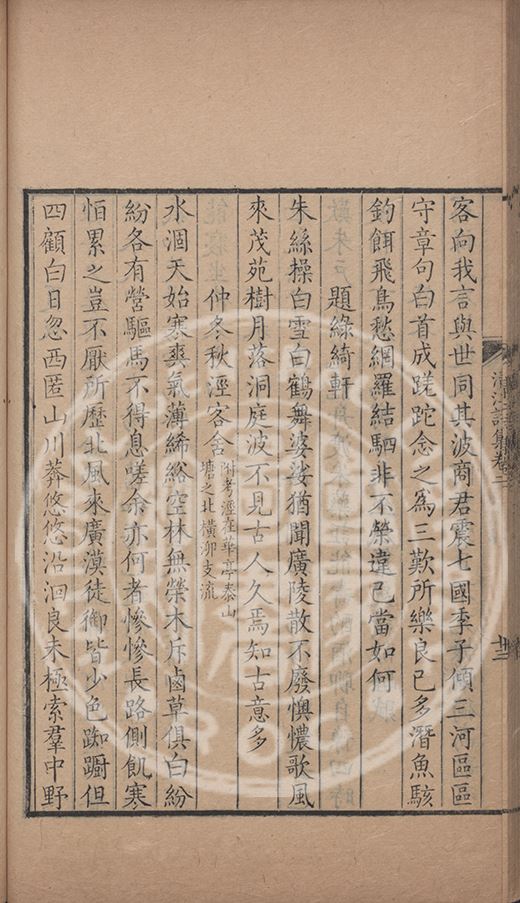 客向我言與世同其波商君震七國季子傾三河區區
守章句白首成蹉跎念之為三歎所樂良已多潛魚駭
釣餌飛鳥愁網羅結駟非不榮違己當如何
題綠綺軒
朱絲操白雪白鶴舞婆娑猶聞廣陵散不廢懊憹歌風
來茂苑樹月落洞庭波不見古人久焉知古意多
仲冬秋涇客舍附考涇在華亭泰山
塘之北橫泖支流
水涸天始寒爽氣薄絺綌空林無榮木斥鹵草俱白紛
紛各有營驅馬不得息嗟余亦何者慘慘長路側飢寒
怕累之豈不厭所歷北風來廣漠徒御皆少色踟躕但
四顧白日忽西匿山川莽悠悠沿洄良未極索羣中野
清江詩集卷二